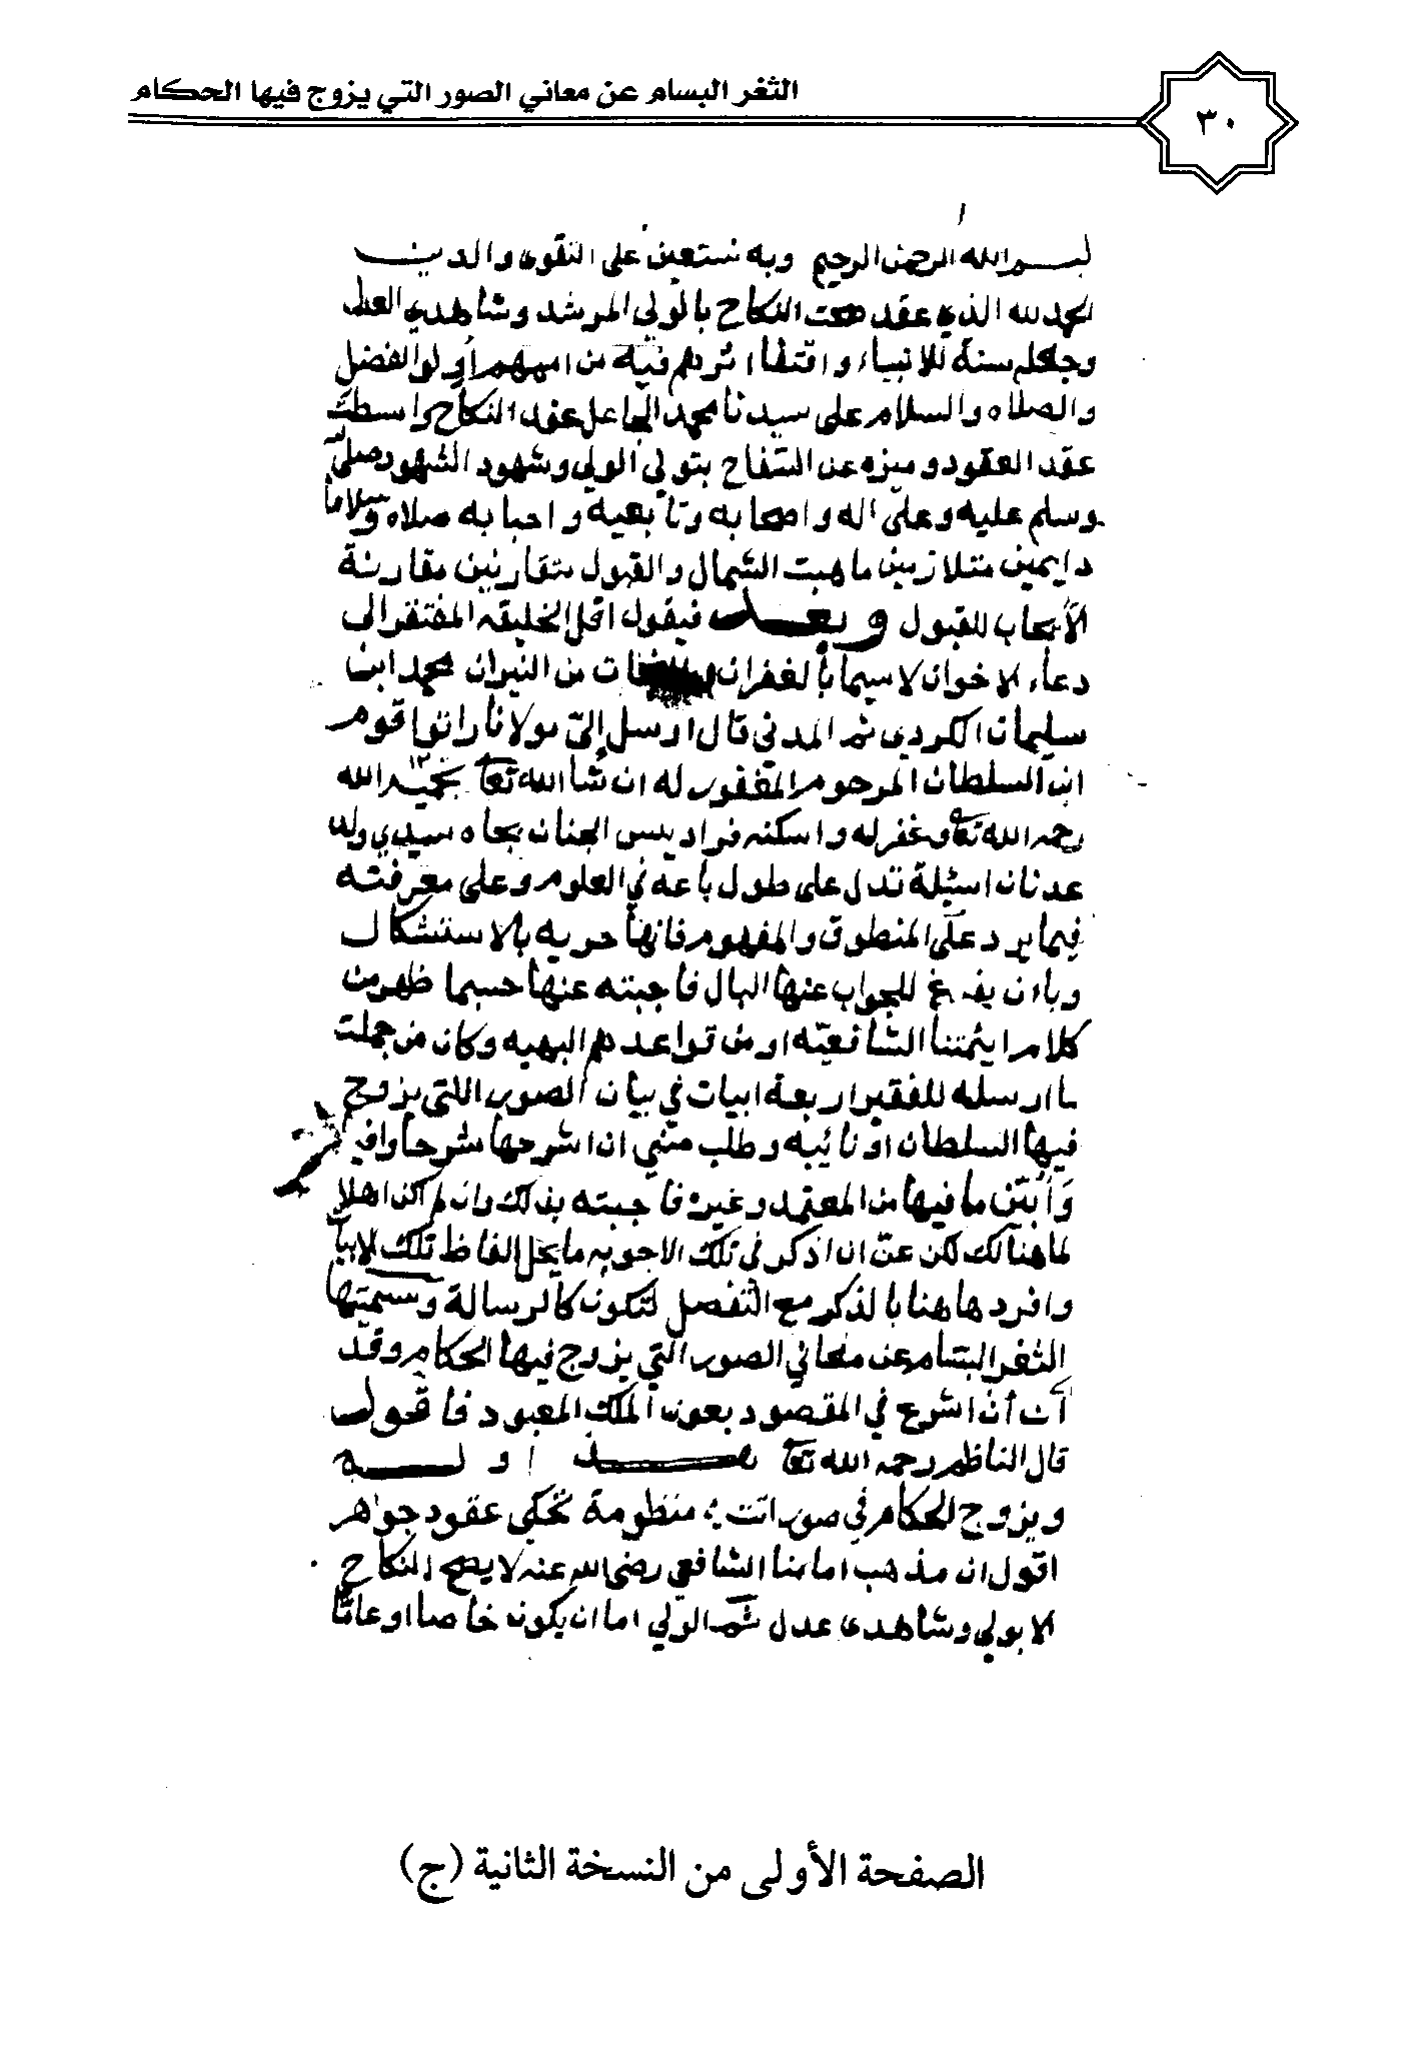 الثغر البسام عن معاني الصور التي يزوج فيها الحكام
٣٠
بسم الله الرحمن الرحيم وبه نستعين على التقوى والدين
الحمد لله الذي عقد صحت النكاح بالولى المرشد وشاهدي العدل
وجعله سنة للانبياء واقتفا اثرهم فيه من اممهم أولوا الفضل
والصلاه والسلام على سيدنا محمد الجاعل عقد النكاح واسطت
عقد العقود وميزه عن السفاح بتولي الولي وشهود الشهود صلى
وسلم عليه وعلى اله واصحابه وتابعيه واحبابه صلاه وسلاما
دايمين متلازمين ما هبت الشمال والقبول متقارنين مقارنة
الأيجاب للقبول وبعد فيقول اقل الخليقه المفتقر الى
دعاء الاخوان لاسيما بالغفران من النيران محمد ابن
سليمان الكردي ثم المدني قال ارسل إليّ مولانا راتوا قوم
ابن السلطان المرحوم المغفور له ان شا الله تعا الله
رحمه الله تعا وغفر له واسكنه فراديس الجنان بجاه سيدي ولد
عدنان اسئلة تدل على طول باعه في العلوم وعلى معرفته
فيما يرد على المنطوق والمفهوم فانها حريه بالاستشكال
وبان يفرغ للجواب عنها البال فاجبته عنها حسبما ظهر من
كلام ايئمتنا الشافعيّه او من قواعدهم البهيه وكان من جملت
ما ارسله للفقير اربعة ابيات في بيان الصور اللتي يزوج
فيها السلطان او نائيبه وطلب منّي ان اشرحها شرحا وافي
وَأُبيّن ما فيها من المعتمد وغيره فاجبته بذلك وان لم اكن اهلا
لما هنالك لكن عنّ ان اذكر في تلك الاجوبه ما يحل الفاظ تلك الابيا
وافردها هنا بالذكر مع التفصل لتكون كالرسالة وسميتها
الثغر البسام عن معاني الصور التي يزوج فيها الحكام وقد
آن أن اشرع في المقصود بعون الملك المعبود فاقول
قال الناظم رحمه الله تعا
ويزوج الحكام في صور اتت منظومة تحكي عقود جواهر
اقول ان مذهب امامنا الشافعي رضى الله عنه لا يصح النكاح
الا بولي وشاهدي عدل ثم الولي اما ان يكون خاصا او عامّا
الصفحة الأولى من النسخة الثانية (ج)